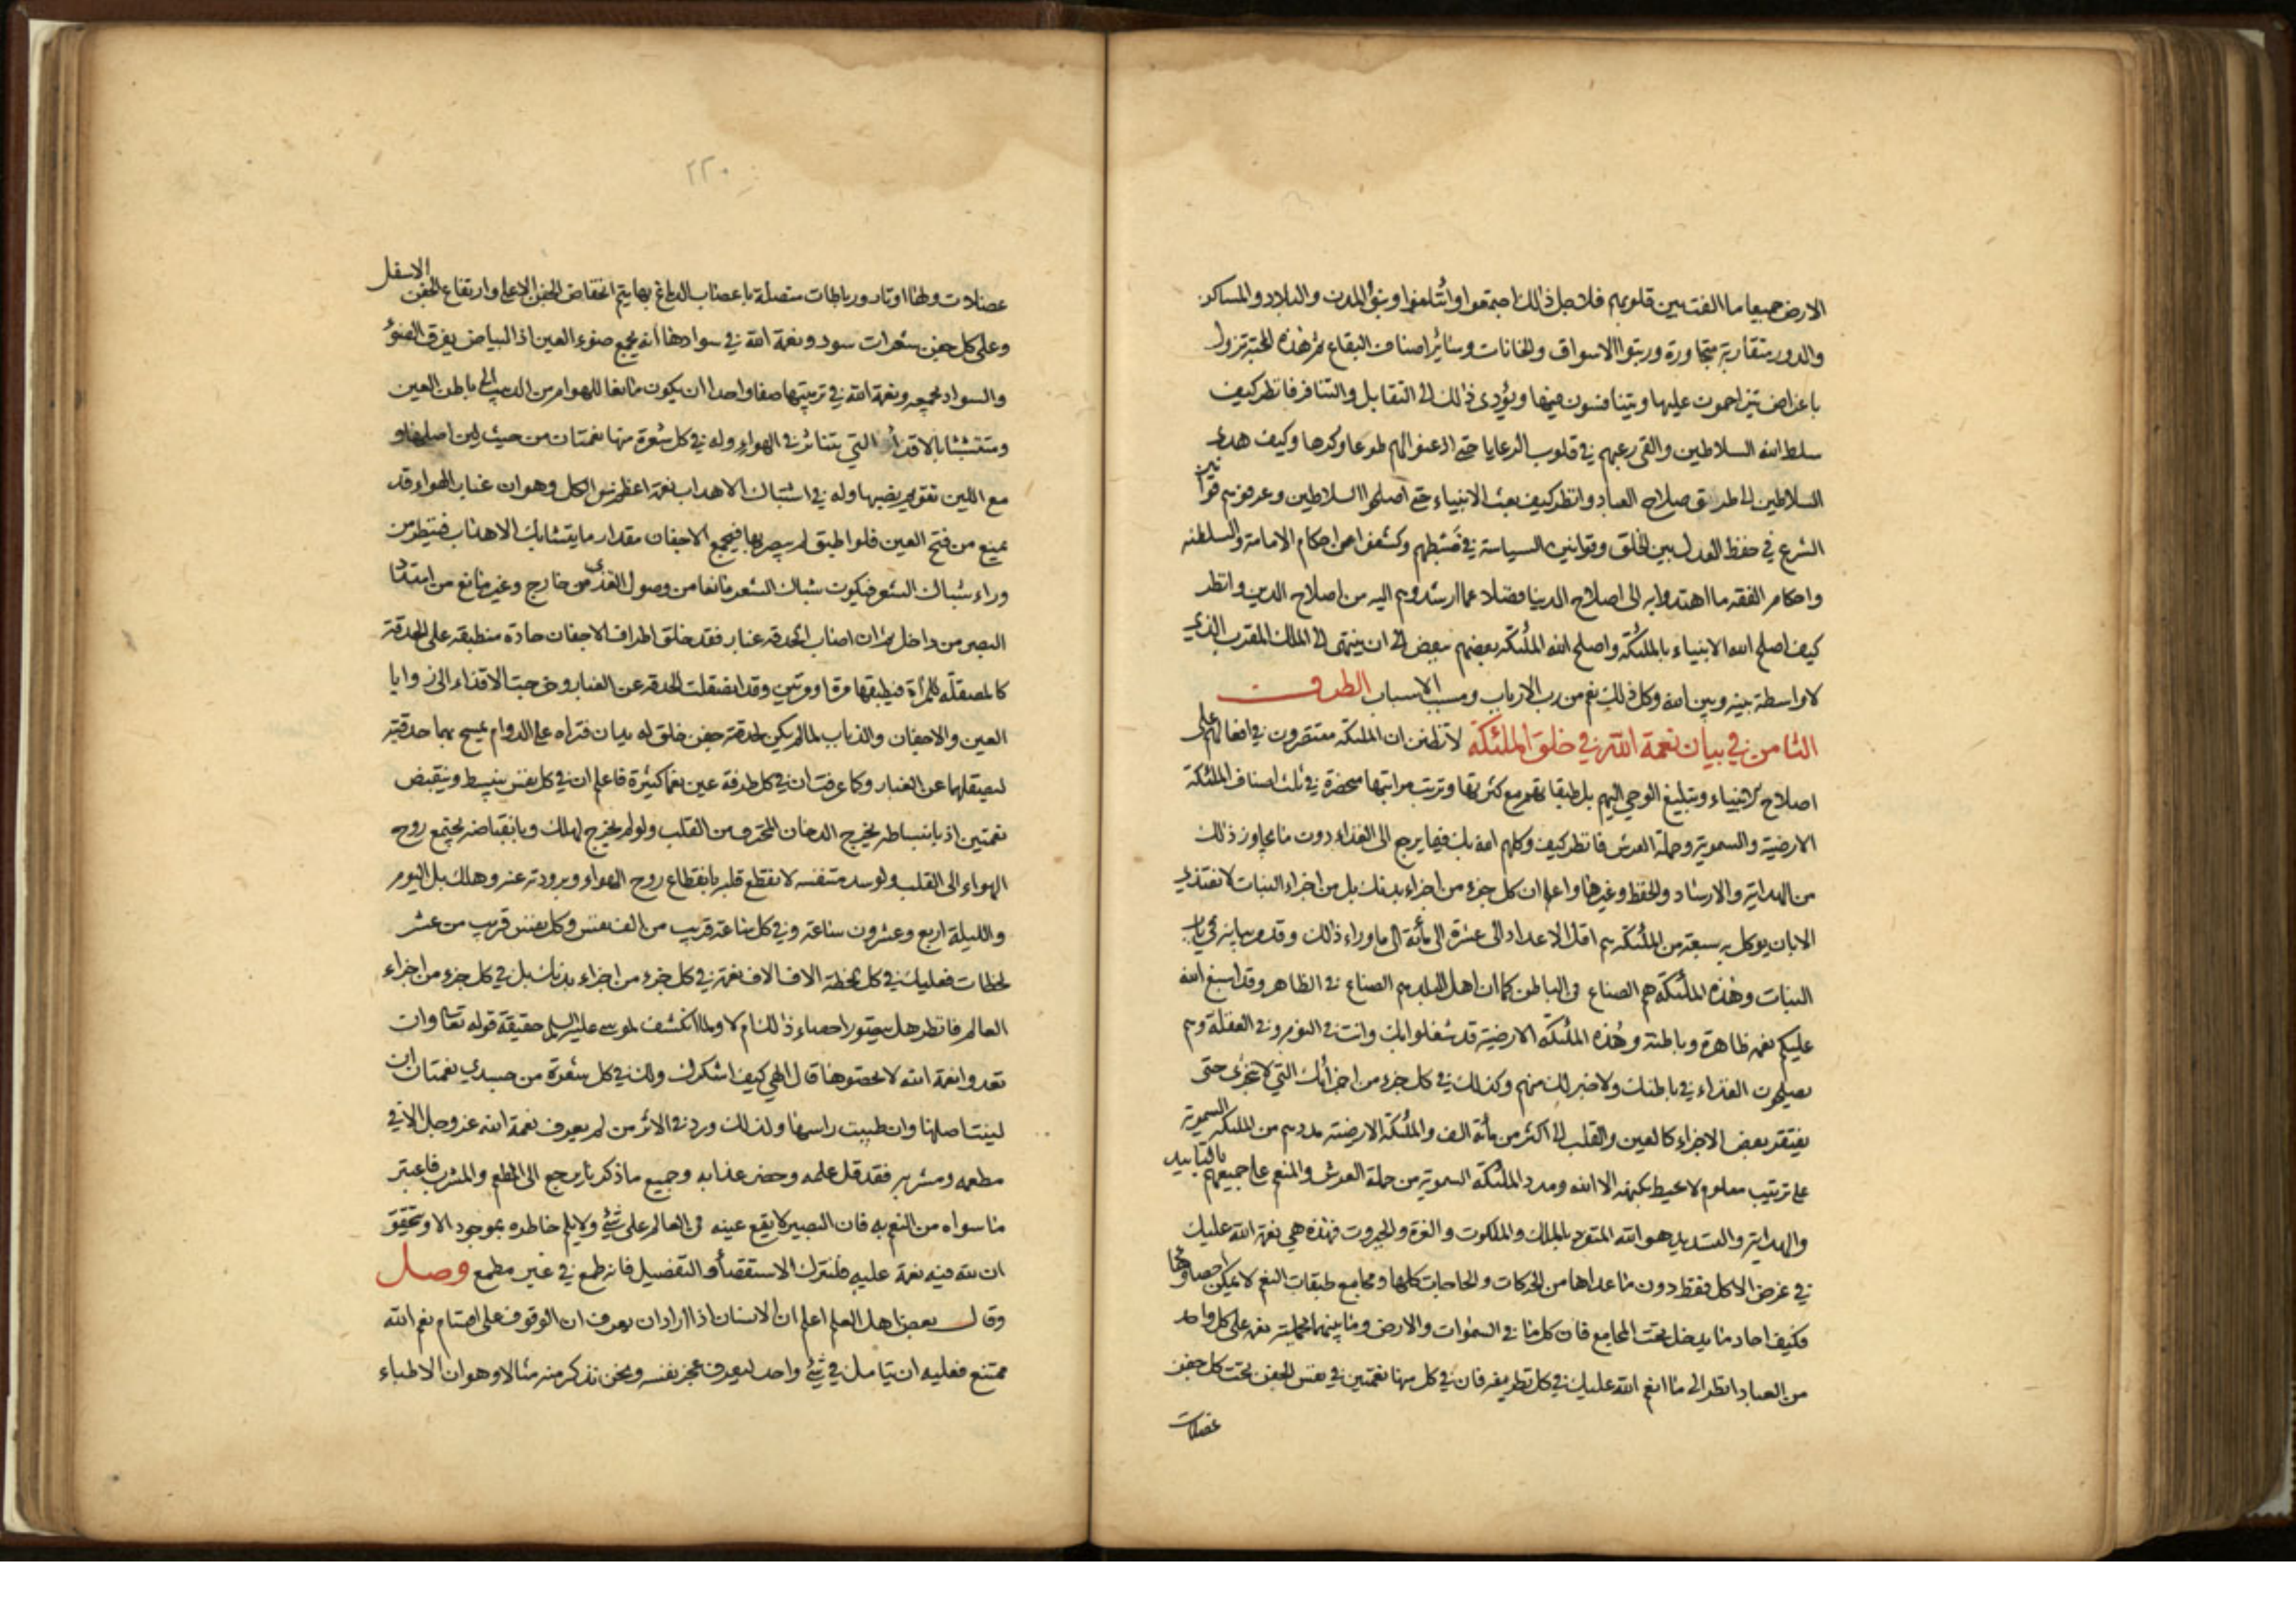 الارض جميعا ما الفت بين قلوبهم فلاجل ذلك اجتمعوا وائتلفوا وبنوا المدن والبلاد والمساكن
والدور متقاربة متجاورة ورتبوا الاسواق والخانات وسائر اصناف البقاع ثم هذه المحبة تزول
باغراض يتزاحمون عليها ويتنافسون فيها ويؤدى ذلك الى التقابل والتنافر فانظر كيف
سلط الله السلاطين والقى رعبهم في قلوب الرعايا حتى اذعنوا لهم طوعا وكرها وكيف هدى
السلاطين الى طريق صلاح العباد وانظر كيف بعث الانبياء حتى اصلحوا السلاطين وعرفوهم قوانين
الشرع في حفظ العدل بين الخلق وقوانين السياسة في ضبطهم وكشفوا من احكام الامامة والسلطنه
واحكام الفقه ما اهتدوا به الى اصلاح الدنيا فضلا عما ارشدوهم اليه من اصلاح الدين وانظر
كيف اصلح الله الانبياء بالملئكة واصلح الله الملئكة بعضهم ببعض الى ان ينتهى الى الملك المقرب الذي
لا واسطة بينه وبين الله وكل ذلك نعم من رب الارباب ومسبب الاسباب الطرف
الثامن في بيان نعمة الله في خلق الملئكة لا تظنن ان الملئكة مقتصرون في افعالهم على
اصلاح الانبياء وتبليغ الوحي اليهم بل طبقاتهم مع كثرتها وترتيب مراتبها منحصرة في ثلث اصناف الملئكة
الارضية والسموية وحملة العرش فانظر كيف وكلهم الله بك فيما يرجع الى الغذاء دون ما يجاوز ذلك
من الهداية والارشاد والحفظ وغيرها واعلم ان كل جزء من اجزاء بدنك بل من اجزاء النبات لا يغتذي
الا بان يوكل به سبعة من الملئكة هم اقل الاعداد الى عشرة الى مأئة الى ما وراء ذلك وقد مر بيانه في باب
النبات وهذه الملئكة هم الصناع في الباطن كما ان اهل البلد هم الصناع في الظاهر وقد اسبغ الله
عليكم نعمه ظاهرة وباطنة وهذه الملئكة الارضية قد شغلوا بك وانت في النوم وفي الغفلة وهم
يصلحون الغذاء في باطنك ولا خبر لك منهم وكذلك في كل جزء من اجزائك التي لا تتجزى حتى
يفتقر بعض الاجزاء كالعين والقلب الى اكثر من مأئة الف والملئكة الارضية مددهم من الملئكة السموية
على ترتيب معلوم لا يحيط بكنهه الا الله ومدد الملئكة السموية من حملة العرش والمنعم على جميعهم بالتاييد
والهداية والتسديد هو الله المتفرد بالملك والملكوت والعزة والجبروت فهذه هي نعمة الله عليك
في غرض الاكل فقط دون ما عداها من الحركات والحاجات كلها ومجامع طبقات النعم لا يمكن احصاؤها
فكيف احاد ما يدخل تحت المجامع فان كل ما في السموات والارض وما بينهما بجملته نعمه على كل واحد
من العباد انظر الى ما انعم الله عليك في كل تطريفه فان في كل منها نعمتين في نفس الجفن تحت كل جفن
عضلات
٢٢٠
عضلات ولها اوتار ورباطات متصلة باعصاب الدماغ بها يتم انخفاض الجفن الاعلى وارتفاع الجفن الاسفل
وعلى كل جفن شعرات سود ونعمة الله في سوادها انه يجمع ضوء العين اذ البياض يفرق الضوء
والسواد يجمعه ونعمة الله في ترتيبها صفا واحدا ان يكون مانعا للهوام من الدبيب الى باطن العين
ومتشبثا بالاقذاء التي تتناثر في الهواء وله في كل شعرة منها نعمتان من حيث لين اصلها و
مع اللين تقويم نصبها وله في اشتباك الاهداب نعمة اعظم من الكل وهو ان غبار الهواء قد
يمنع من فتح العين فلو اطبق لم يبصر بها فيجمع الاجفان مقدار ما يتشابك الاهداب فينظر من
وراء شباك الشعر فيكون شباك الشعر مانعا من وصول القذى من خارج وغير مانع من امتداد
البصر من داخل ثم ان اصاب الحدقه غبار فقد خلق اطراف الاجفان حادة منطبقه على الحدقة
كالمصقلة للمرآة فيطبقها مرة او مرتين وقد انصقلت الحدقه عن الغبار وخرجت الاقذاء الى زوايا
العين والاجفان والذباب لما لم يكن لحدقته جفن خلق له يدان فتراه على الدوام يمسح بهما حدقتيه
ليصقلها عن الغبار وكما عرفت ان في كل طرفة عين نعما كثيرة فاعلم ان في كل نفس ينبسط وينقبض
نعمتين اذ بانبساطه يخرج الدخان المحترق من القلب ولو لم يخرج لهلك وبانقباضه يجتمع روح
الهواء الى القلب ولو سد متنفسه لانقطع قلبه بانقطاع روح الهواء وبرودته عنه وهلك بل اليوم
والليلة اربع وعشرون ساعة وفي كل ساعة قريب من الف نفس وكل نفس قريب من عشر
لحظات فعليك في كل لحظة الاف الاف نعمة في كل جزء من اجزاء بدنك بل في كل جزء من اجزاء
العالم فانظر هل يتصور احصاء ذلك ام لا ولما انكشف لموسى عليه السلم حقيقة قوله تعالى وان
تعدوا نعمة الله لا تحصوها قال الهي كيف اشكرك ولك في كل شعرة من جسدي نعمتان ان
لينت اصلها وان طيبت راسها ولذلك ورد في الاثر من لم يعرف نعمة الله عز وجل الا في
مطعمه ومشربه فقد قل علمه وحضر عذابه وجميع ما ذكر يرجع الى المطعم والمشرب فاعتبر
ما سواه من النعم به فان البصير لا يقع عينه في العالم على شئ ولا يلم خاطره بموجود الا ويتحقق
ان لله فيه نعمة عليه فلنترك الاستقصاء والتفصيل فانه طمع في غير مطمع وصل
وقال بعض اهل العلم اعلم ان الانسان اذا اراد ان يعرف ان الوقوف على اقسام نعم الله
ممتنع فعليه ان يتامل في شئ واحد ليعرف عجز نفسه ونحن نذكر منه مثالا وهو ان الاطباء